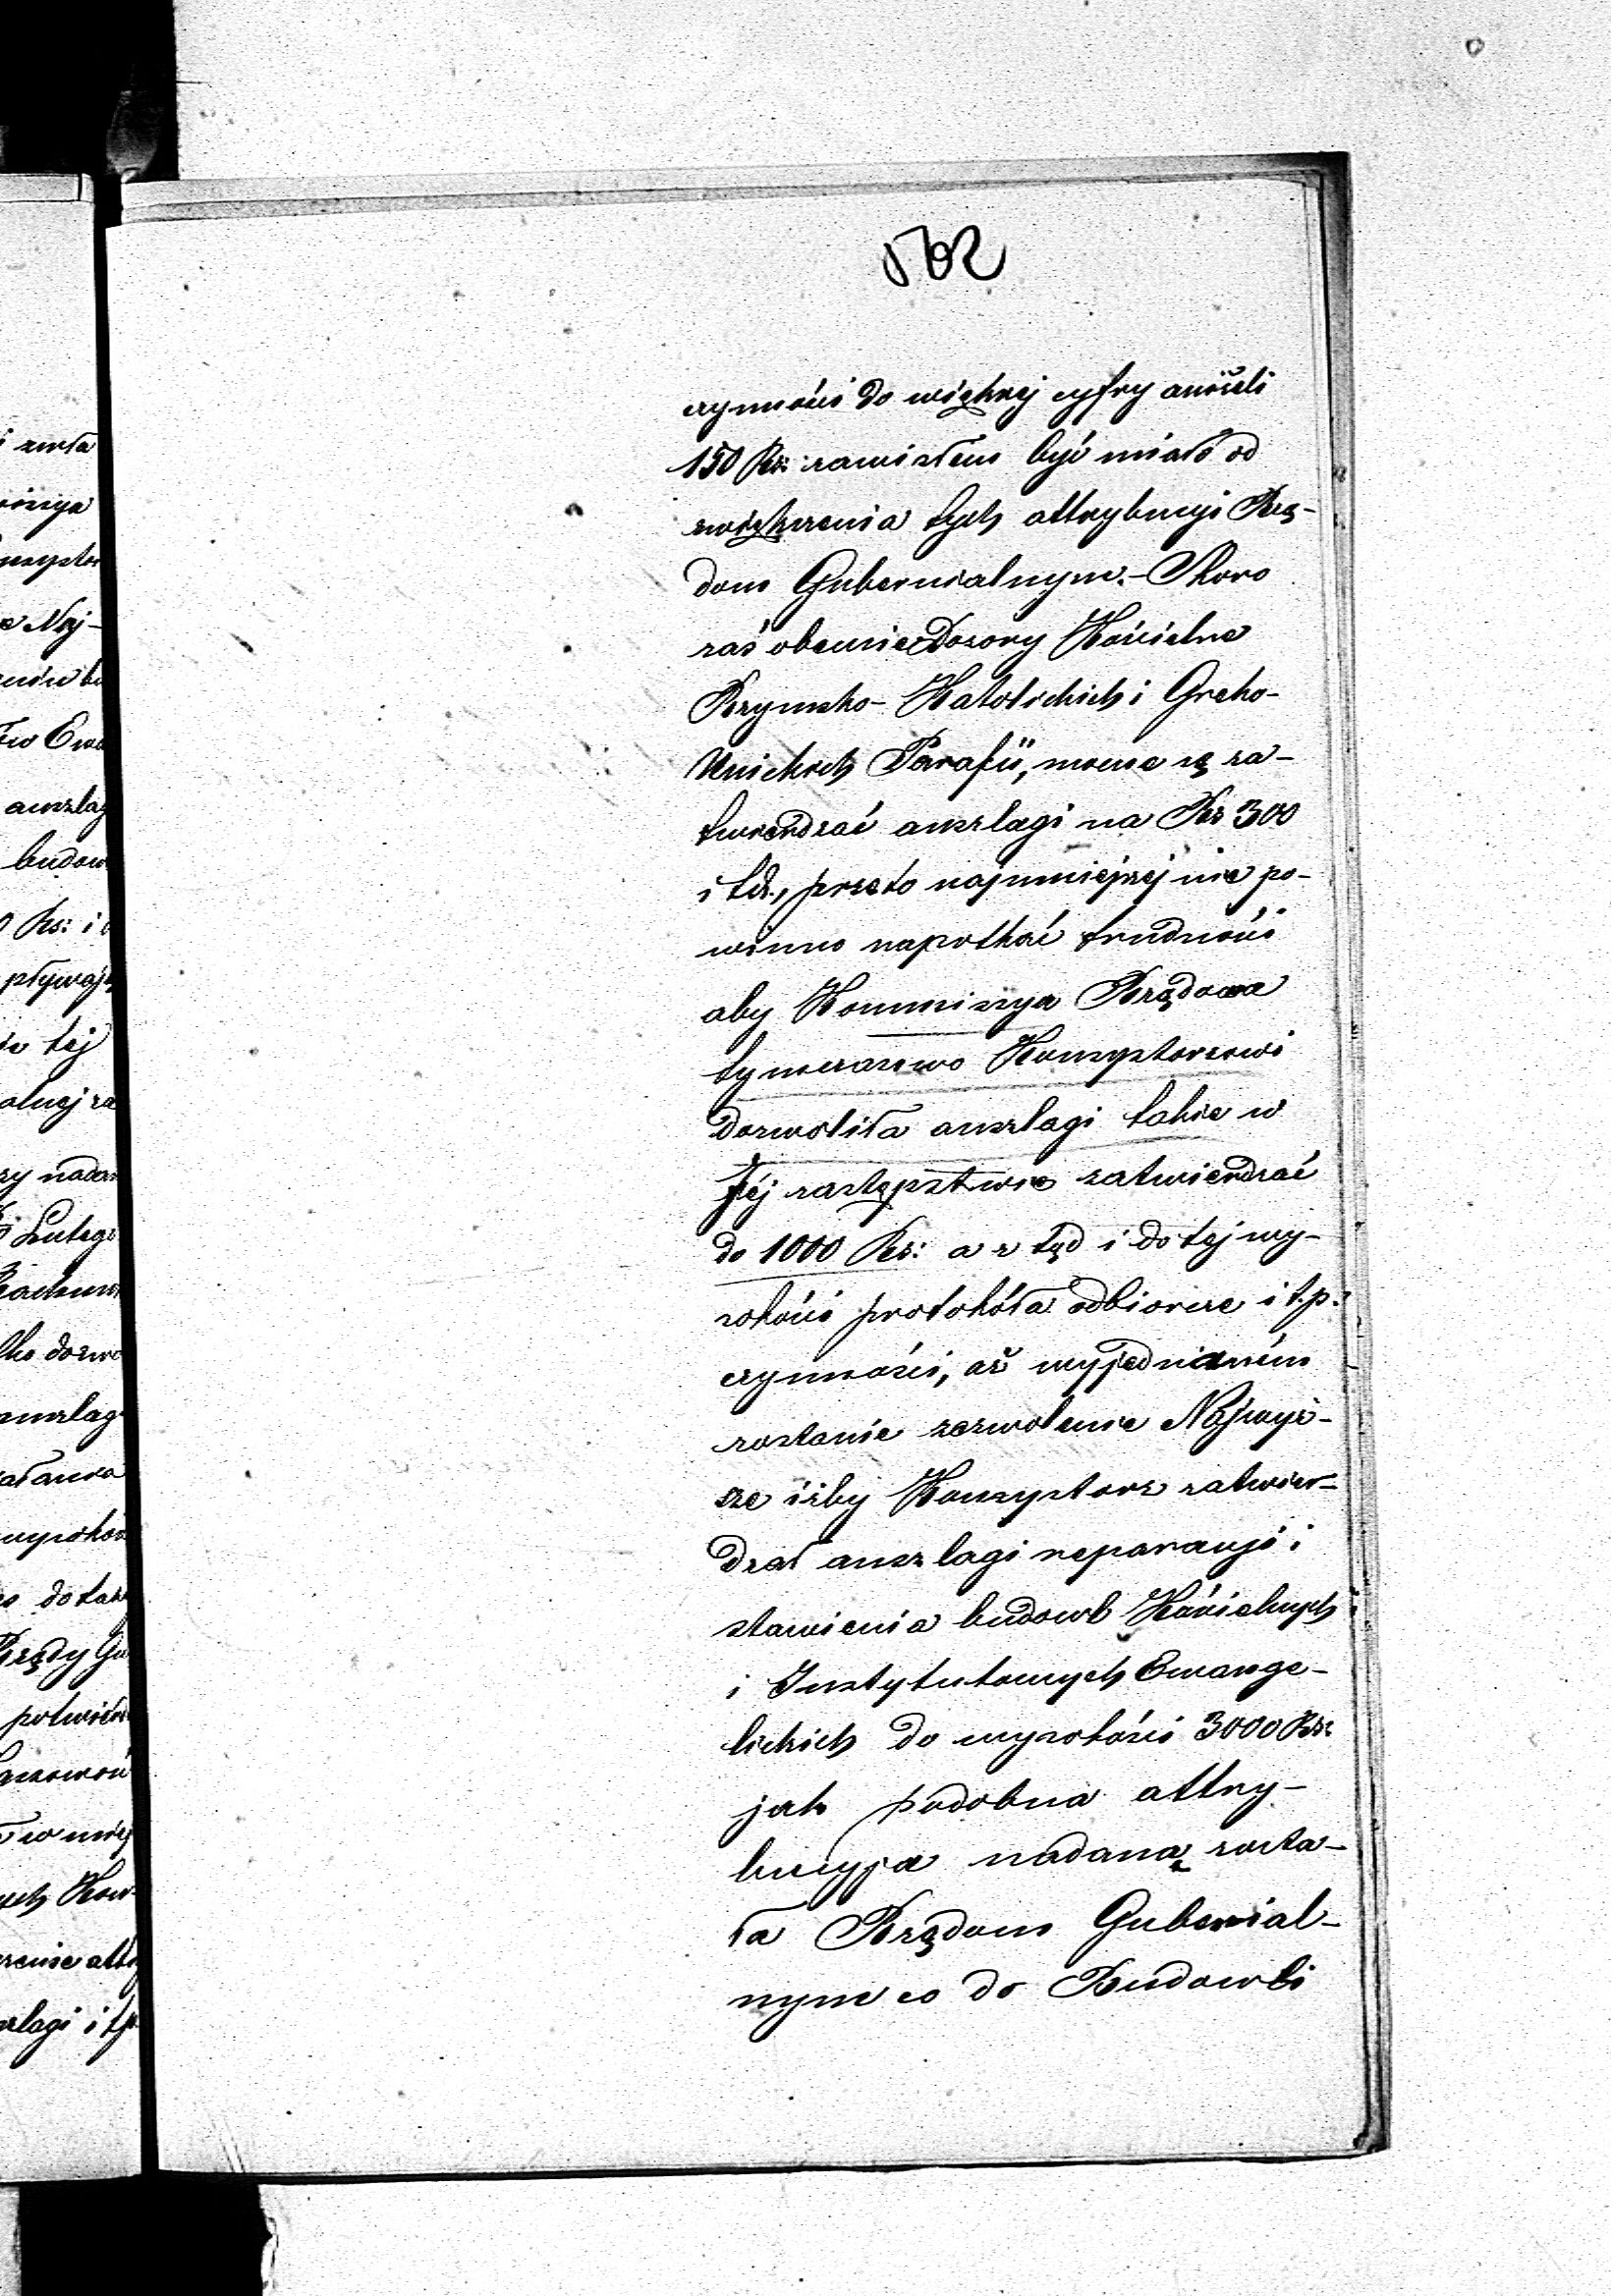 502
czynności do większej cyfry aniżeli
150 Rs: zawisłem być miało od
zwiększenia tych attrybucyi Rzą-
dom Gubernialnym.- Skoro
zaś obecnie Dozory Kościelne
Rzymsko-Katolickich i Greko-
Unickich Parafii, mocne są za-
twierdzać anszlagi na Rs 300
i td., przeto najmniejszej nie po-
winno napotkać trudności
aby Kommissya Rządowa
tymczasowo Konsystorzowi
dozwoliła anszlagi takie w
Jéj zastępstwie zatwierdzać
do 1000 Rs: a z tąd i do tej wy-
sokości protokóła odbiorcze i t.p.
czynności, aż wyjednaném
zostanie zezwolenie Najwyż-
sze iżby Konsystorz zatwier-
dzał anszlagi reparacyi i
stawienia budowl Kościelnych
i Instytutowych Ewange-
lickich do wysokości 3000 Rs:
jak podobna attry-
bucyja nadaną zosta-
ła Rządom Gubernial-
nym co do Budowli
i zwła
Naj-
anszlag
budow
Rs: i
pływają
tej
Lutego
anszlag
do tak
Rządy Gu